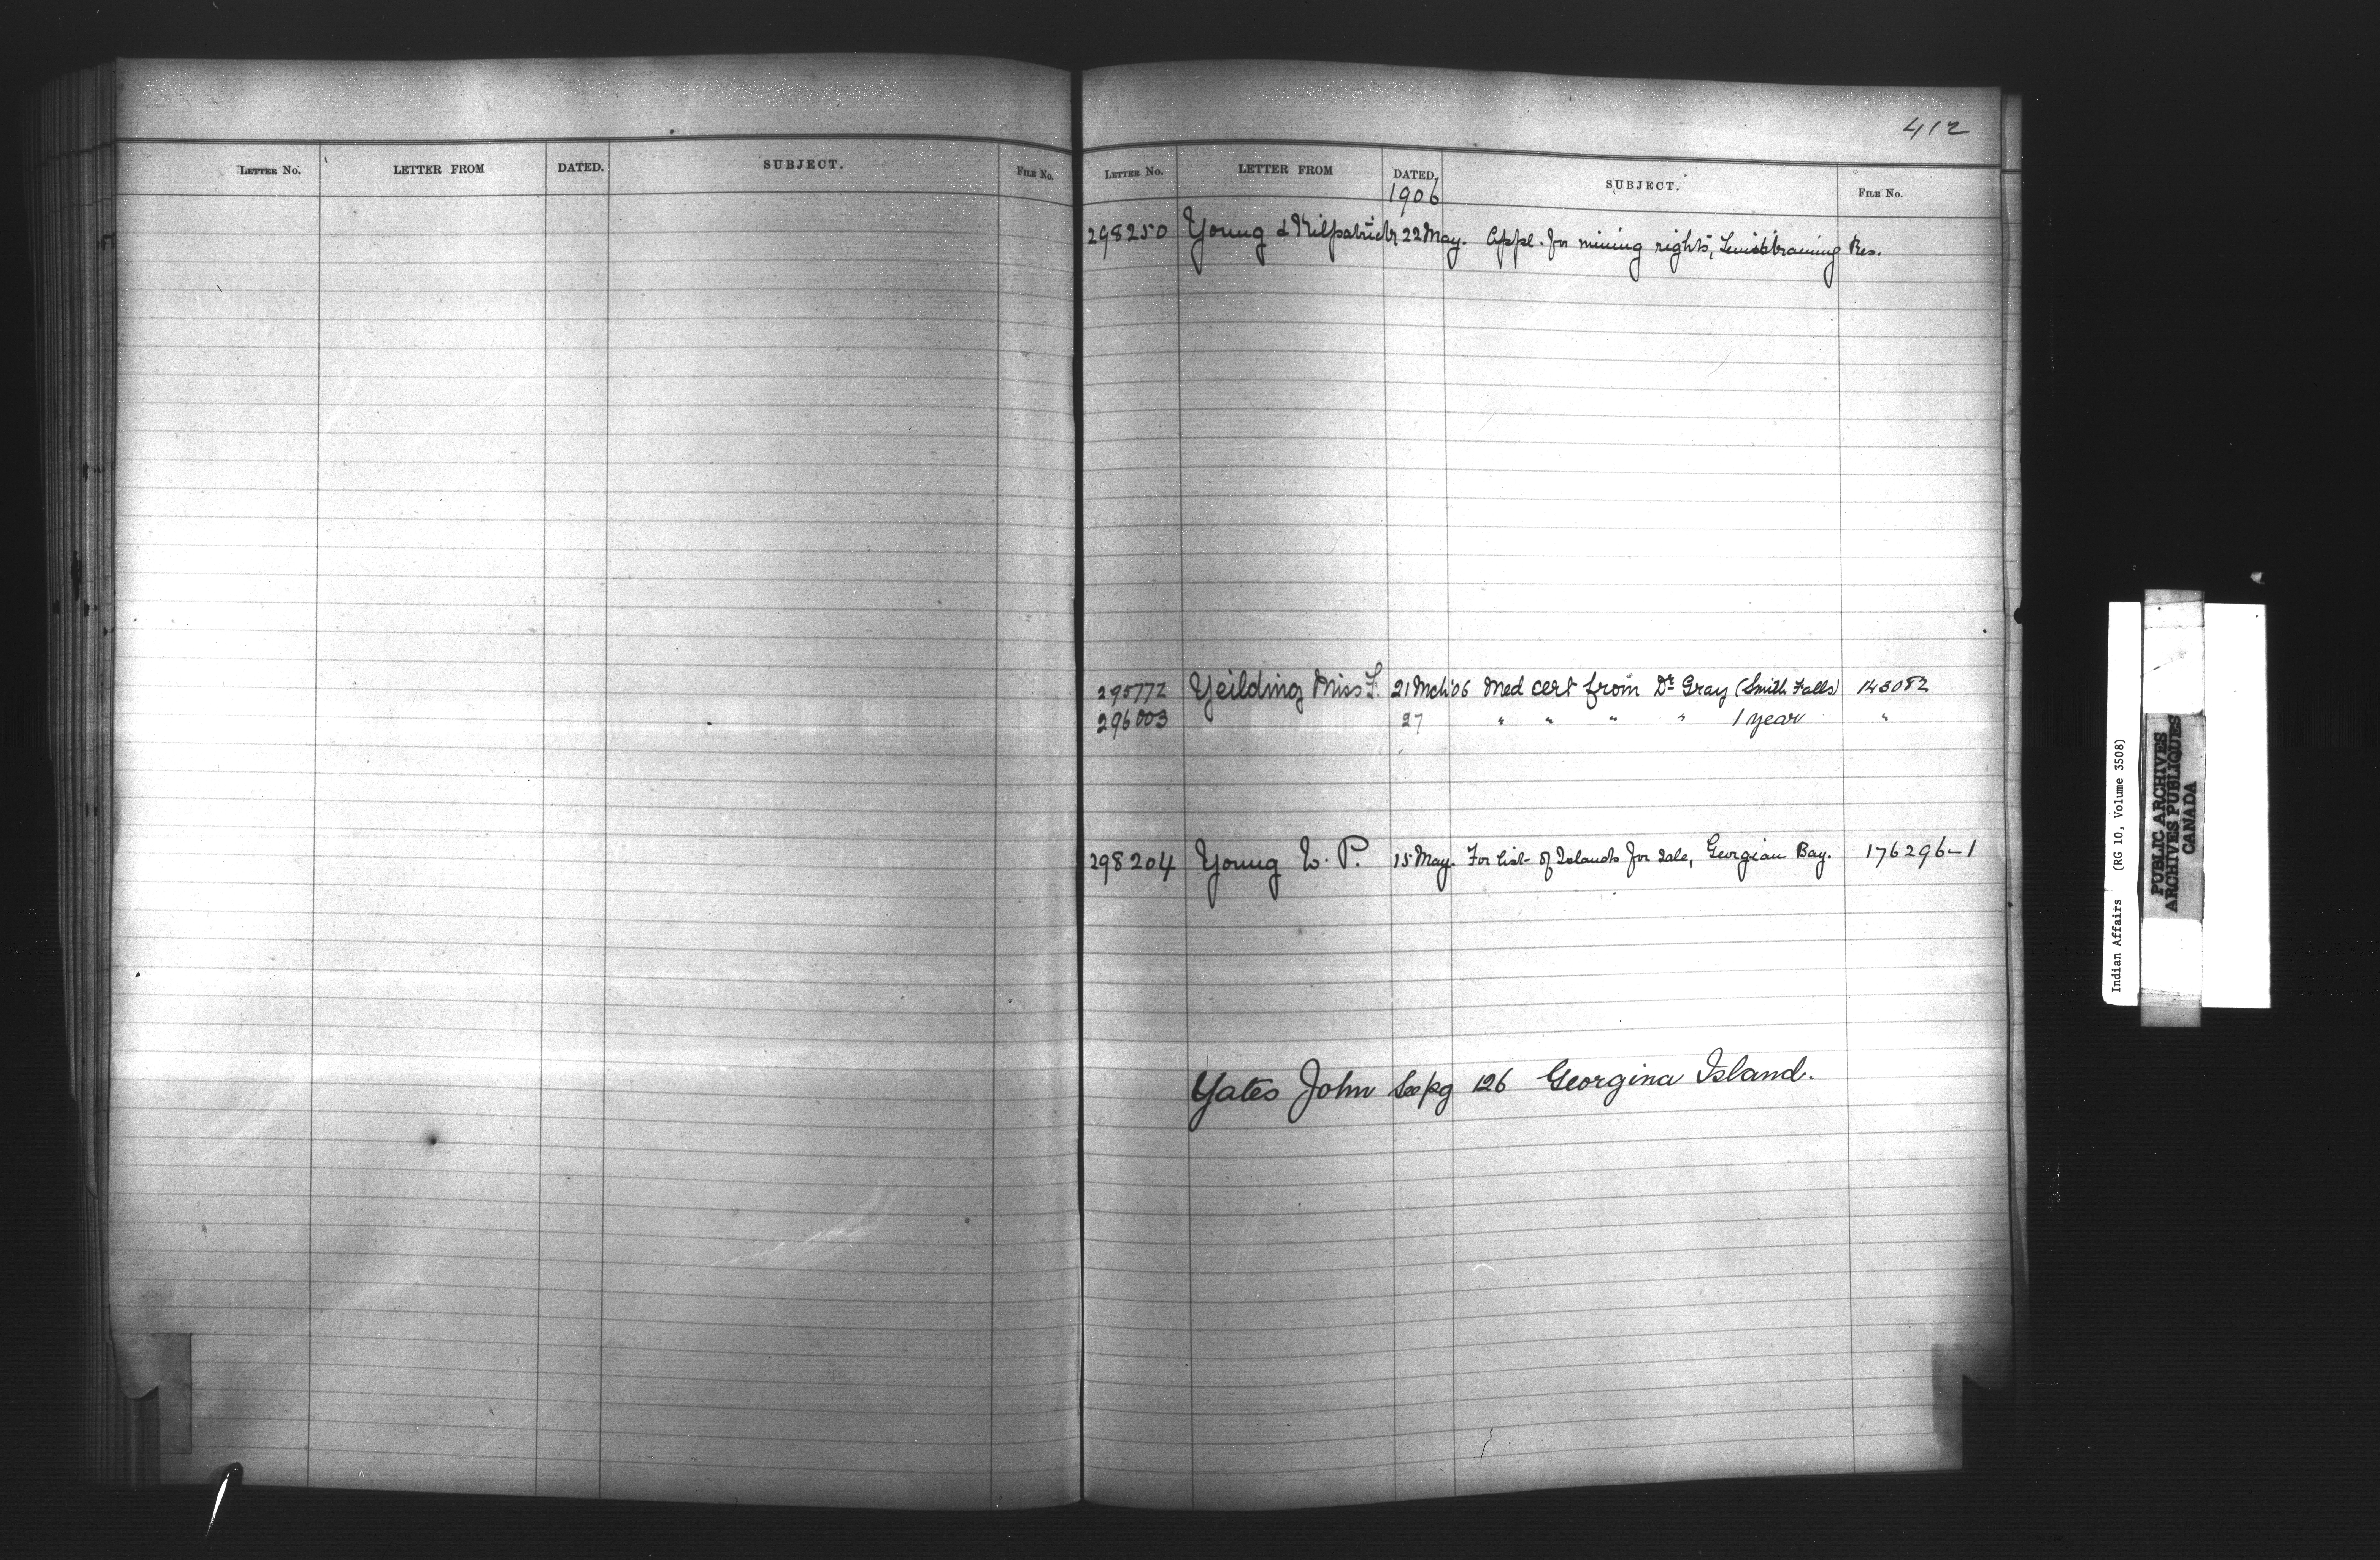 LETTER No. LETTER FROM DATED. SUBJECT. FILE No.
412
LETTER No. LETTER FROM DATED. SUBJECT. FILE No.
1906
298250 Young & Kilpatrick 22 May. Appl. for mining rights, Res.
295772 Yeilding Miss F. 21 Mch '06 Med cert from Dr Gray (Smith Falls) 143082
296003 27 " " " " 1 year "
298204 Young W. P. 15 May. For list of Islands for sale, Georgian Bay. 176296-1
Yates John See pg 126 Georgina Island.
Indian Affairs (RG 10, Volume 3508)
PUBLIC ARCHIVES
ARCHIVES PUBLIQUES
CANADA